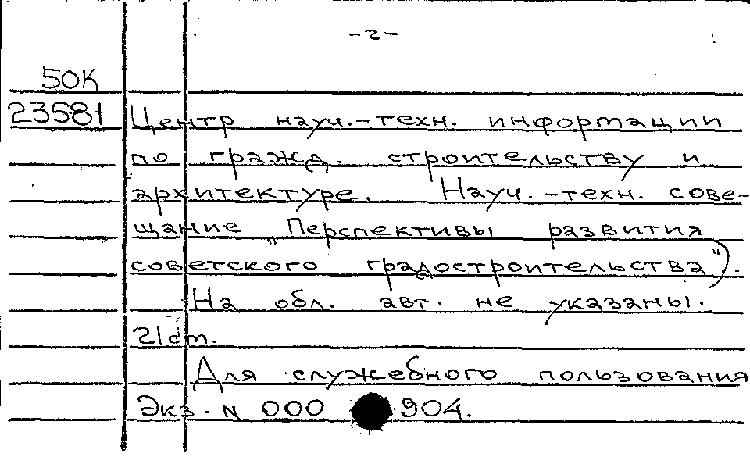 -2-
50К
23581 Центр науч.-техн. информации
по гражд. строительству и
архитектуре. Науч.-техн. сове-
щание „Перспективы развития
советского градостроительства").
На обл. авт. не указаны.
21см.
Для служебного пользования
Экз. N 000 904.